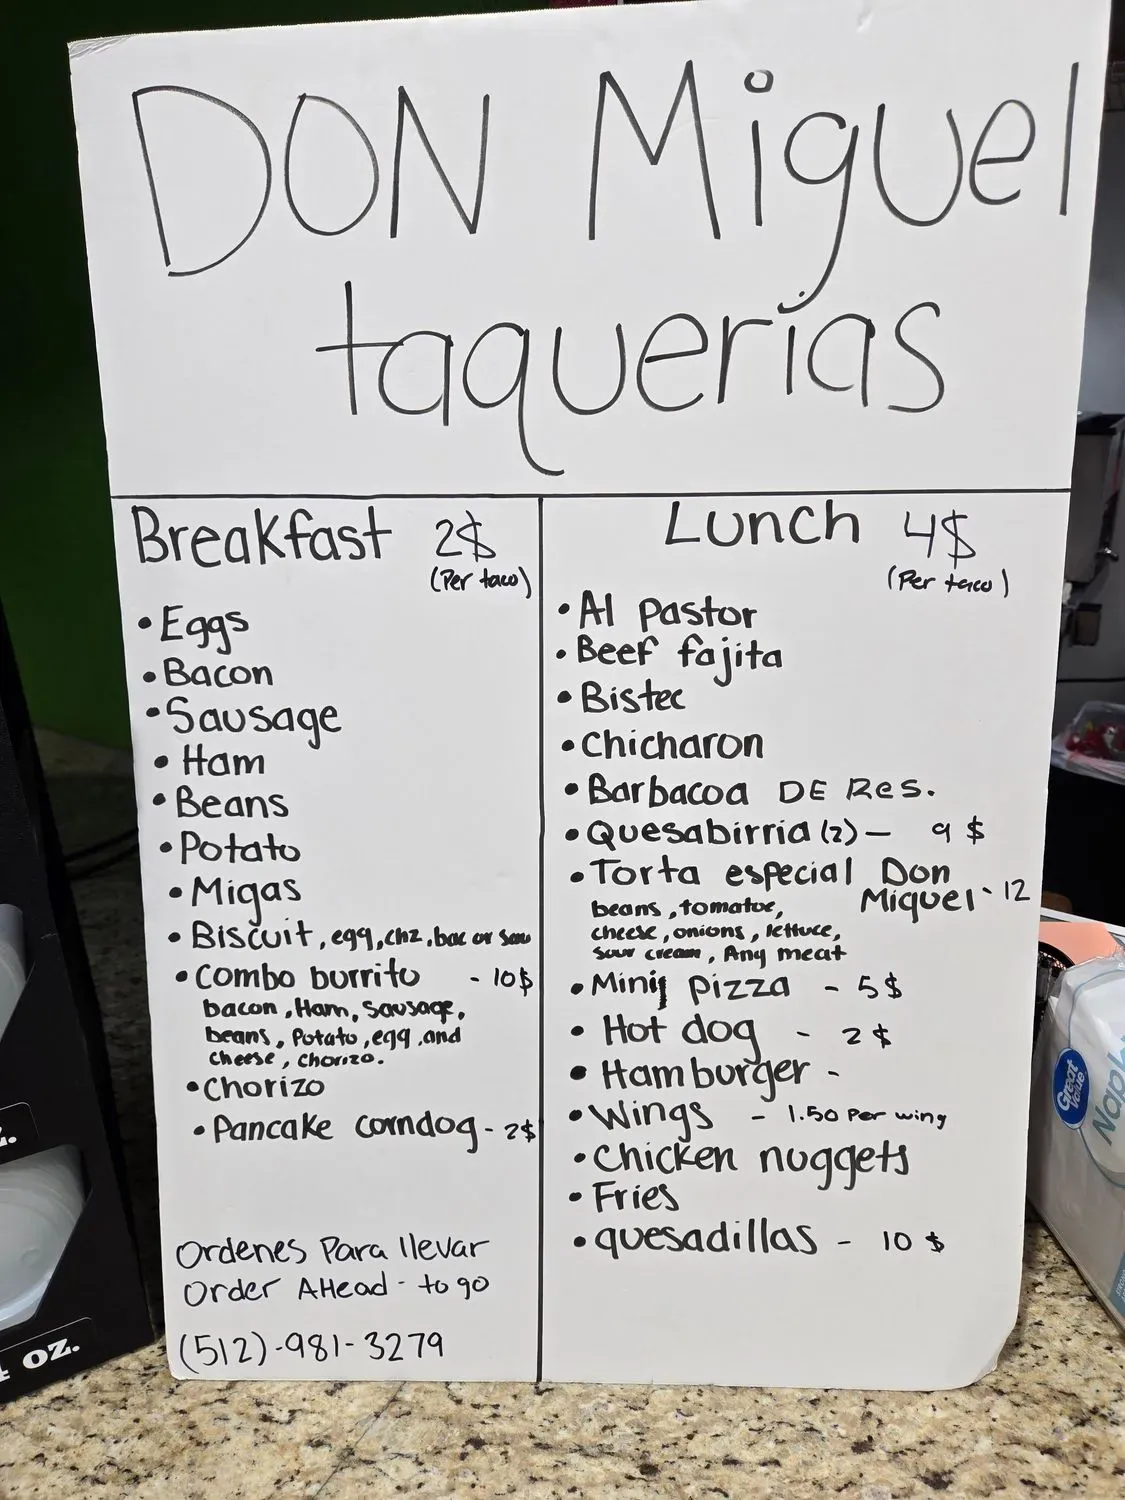 DON Miguel
taquerias
Breakfast 2$
(Per taco)
• Eggs
• Bacon
• Sausage
• Ham
• Beans
• Potato
• Migas
• Biscuit, egg, chz, bac or sau
• Combo burrito - 10$
bacon, Ham, Sausage,
beans, Potato, egg, and
cheese, chorizo.
• Chorizo
• Pancake corndog - 2$
Ordenes Para llevar
Order AHead - to go
(512)-981-3279
Lunch 4$
(Per taco)
• Al pastor
• Beef fajita
• Bistec
• Chicharon
• Barbacoa DE Res.
• Quesabirria (2) — 9 $
• Torta especial Don
Miguel - 12
beans, tomatoe,
cheese, onions, lettuce,
sour cream, Any meat
• Mini pizza - 5$
• Hot dog - 2 $
• Hamburger -
• Wings - 1.50 Per wing
• Chicken nuggets
• Fries
• quesadillas - 10 $
oz.
Great
Value
Napk